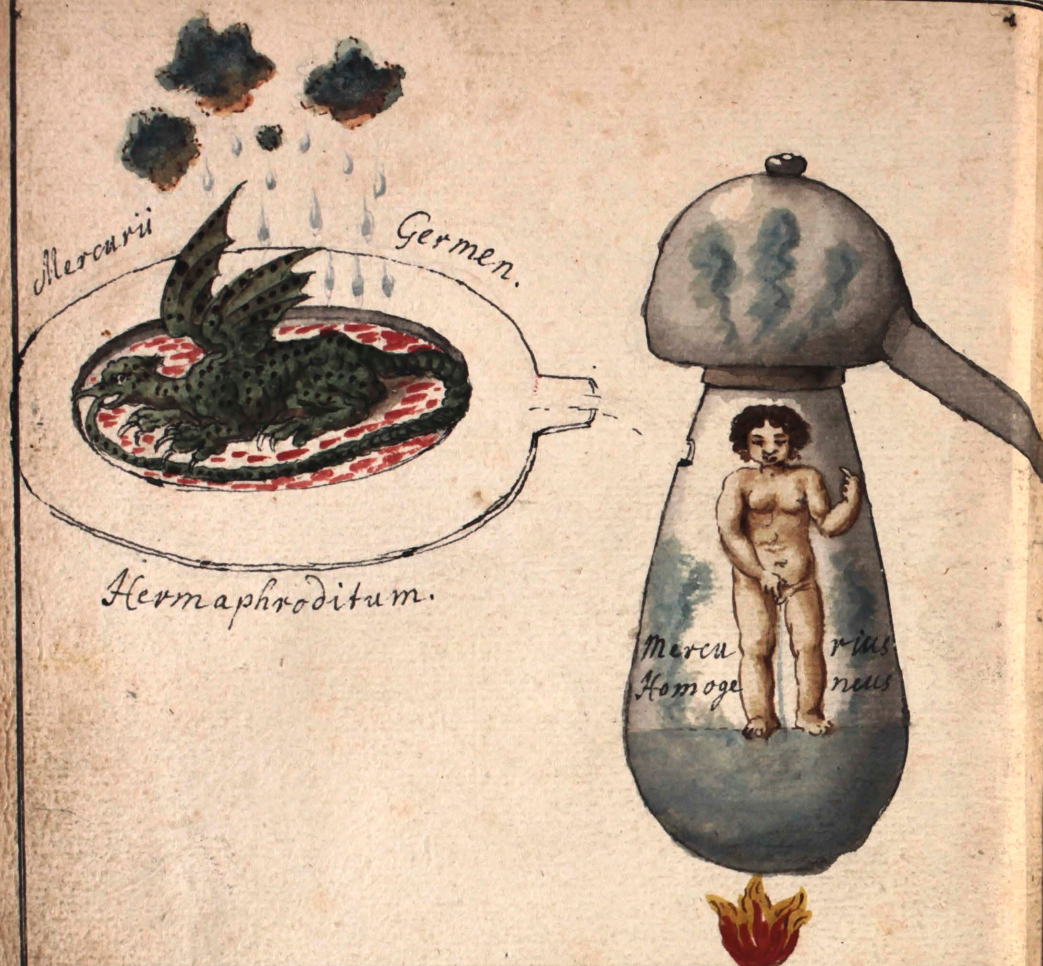 Mercurii Germen.
Hermaphroditum.
Mercurius
Homogeneus